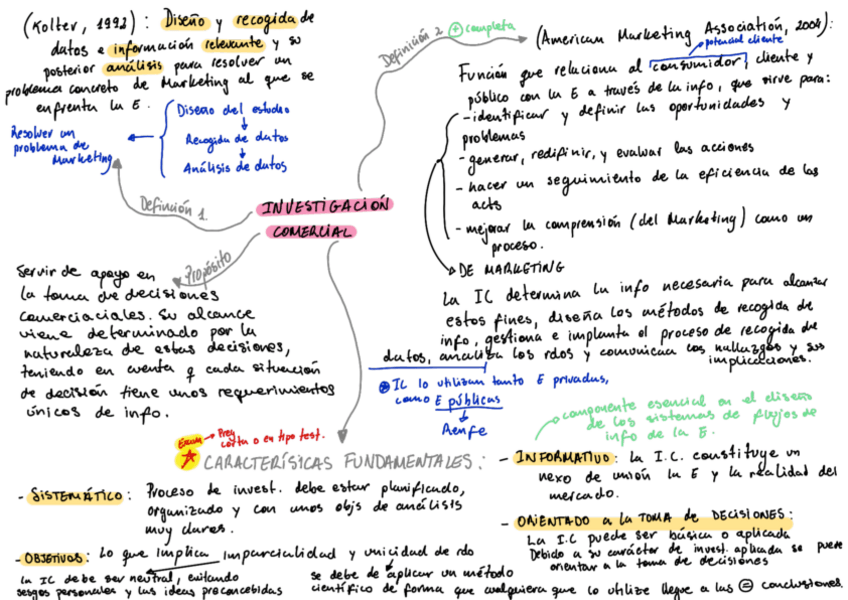 (Kolter, 1992) : Diseño y recogida de
datos e información relevante y su
posterior análisis para resolver un
problema concreto de Marketing al que se
enfrenta la E.
Diseño del estudio
Recogida de datos
Análisis de datos
Resolver un
problema de
Marketing
Definición 1
INVESTIGACIÓN
COMERCIAL
Definición 2 + completa
(American Marketing Association, 2004):
potencial cliente
Función que relaciona al consumidor, cliente y
público con la E a través de la info, que sirve para:
- identificar y definir las oportunidades y
problemas
- generar, redifinir, y evaluar las acciones
- hacer un seguimiento de la eficiencia de las
acts
- mejorar la comprensión (del Marketing) como un
proceso.
DE MARKETING
La IC determina la info necesaria para alcanzar
estos fines, diseña los métodos de recogida de
info, gestiona e implanta el proceso de recogida de
datos, analiza los rdos y comunican los hallazgos y sus
implicaciones.
IC lo utilizan tanto E privadas,
como E públicas
Aenfe
Propósito
Servir de apoyo en
la toma de decisiones
comerciaciales. Su alcance
viene determinado por la
naturaleza de estas decisiones,
teniendo en cuenta q cada situación
de decisión tiene unos requerimientos
únicos de info.
Examen → Preg
corta o en tipo test.
CARACTERÍSICAS FUNDAMENTALES:
- SISTEMÁTICO: Proceso de invest. debe estar planificado,
organizado y con unos objs de análisis
muy claros.
- OBJETIVOS: Lo que implica imparcialidad y unicidad de rdo
la IC debe ser neutral, evitando
sesgos personales y las ideas preconcebidas
se debe de aplicar un método
científico de forma que cualquiera que lo utilize llegue a las = conclusiones.
componente esencial en el diseño
de los sistemas de flujos de
info de la E.
- INFORMATIVO: la I.C. constituye un
nexo de unión la E y la realidad del
mercado.
- ORIENTADO a la TOMA de DECISIONES:
La I.C puede ser básica o aplicada
Debido a su carácter de invest. aplicada se puede
orientar a la toma de decisiones